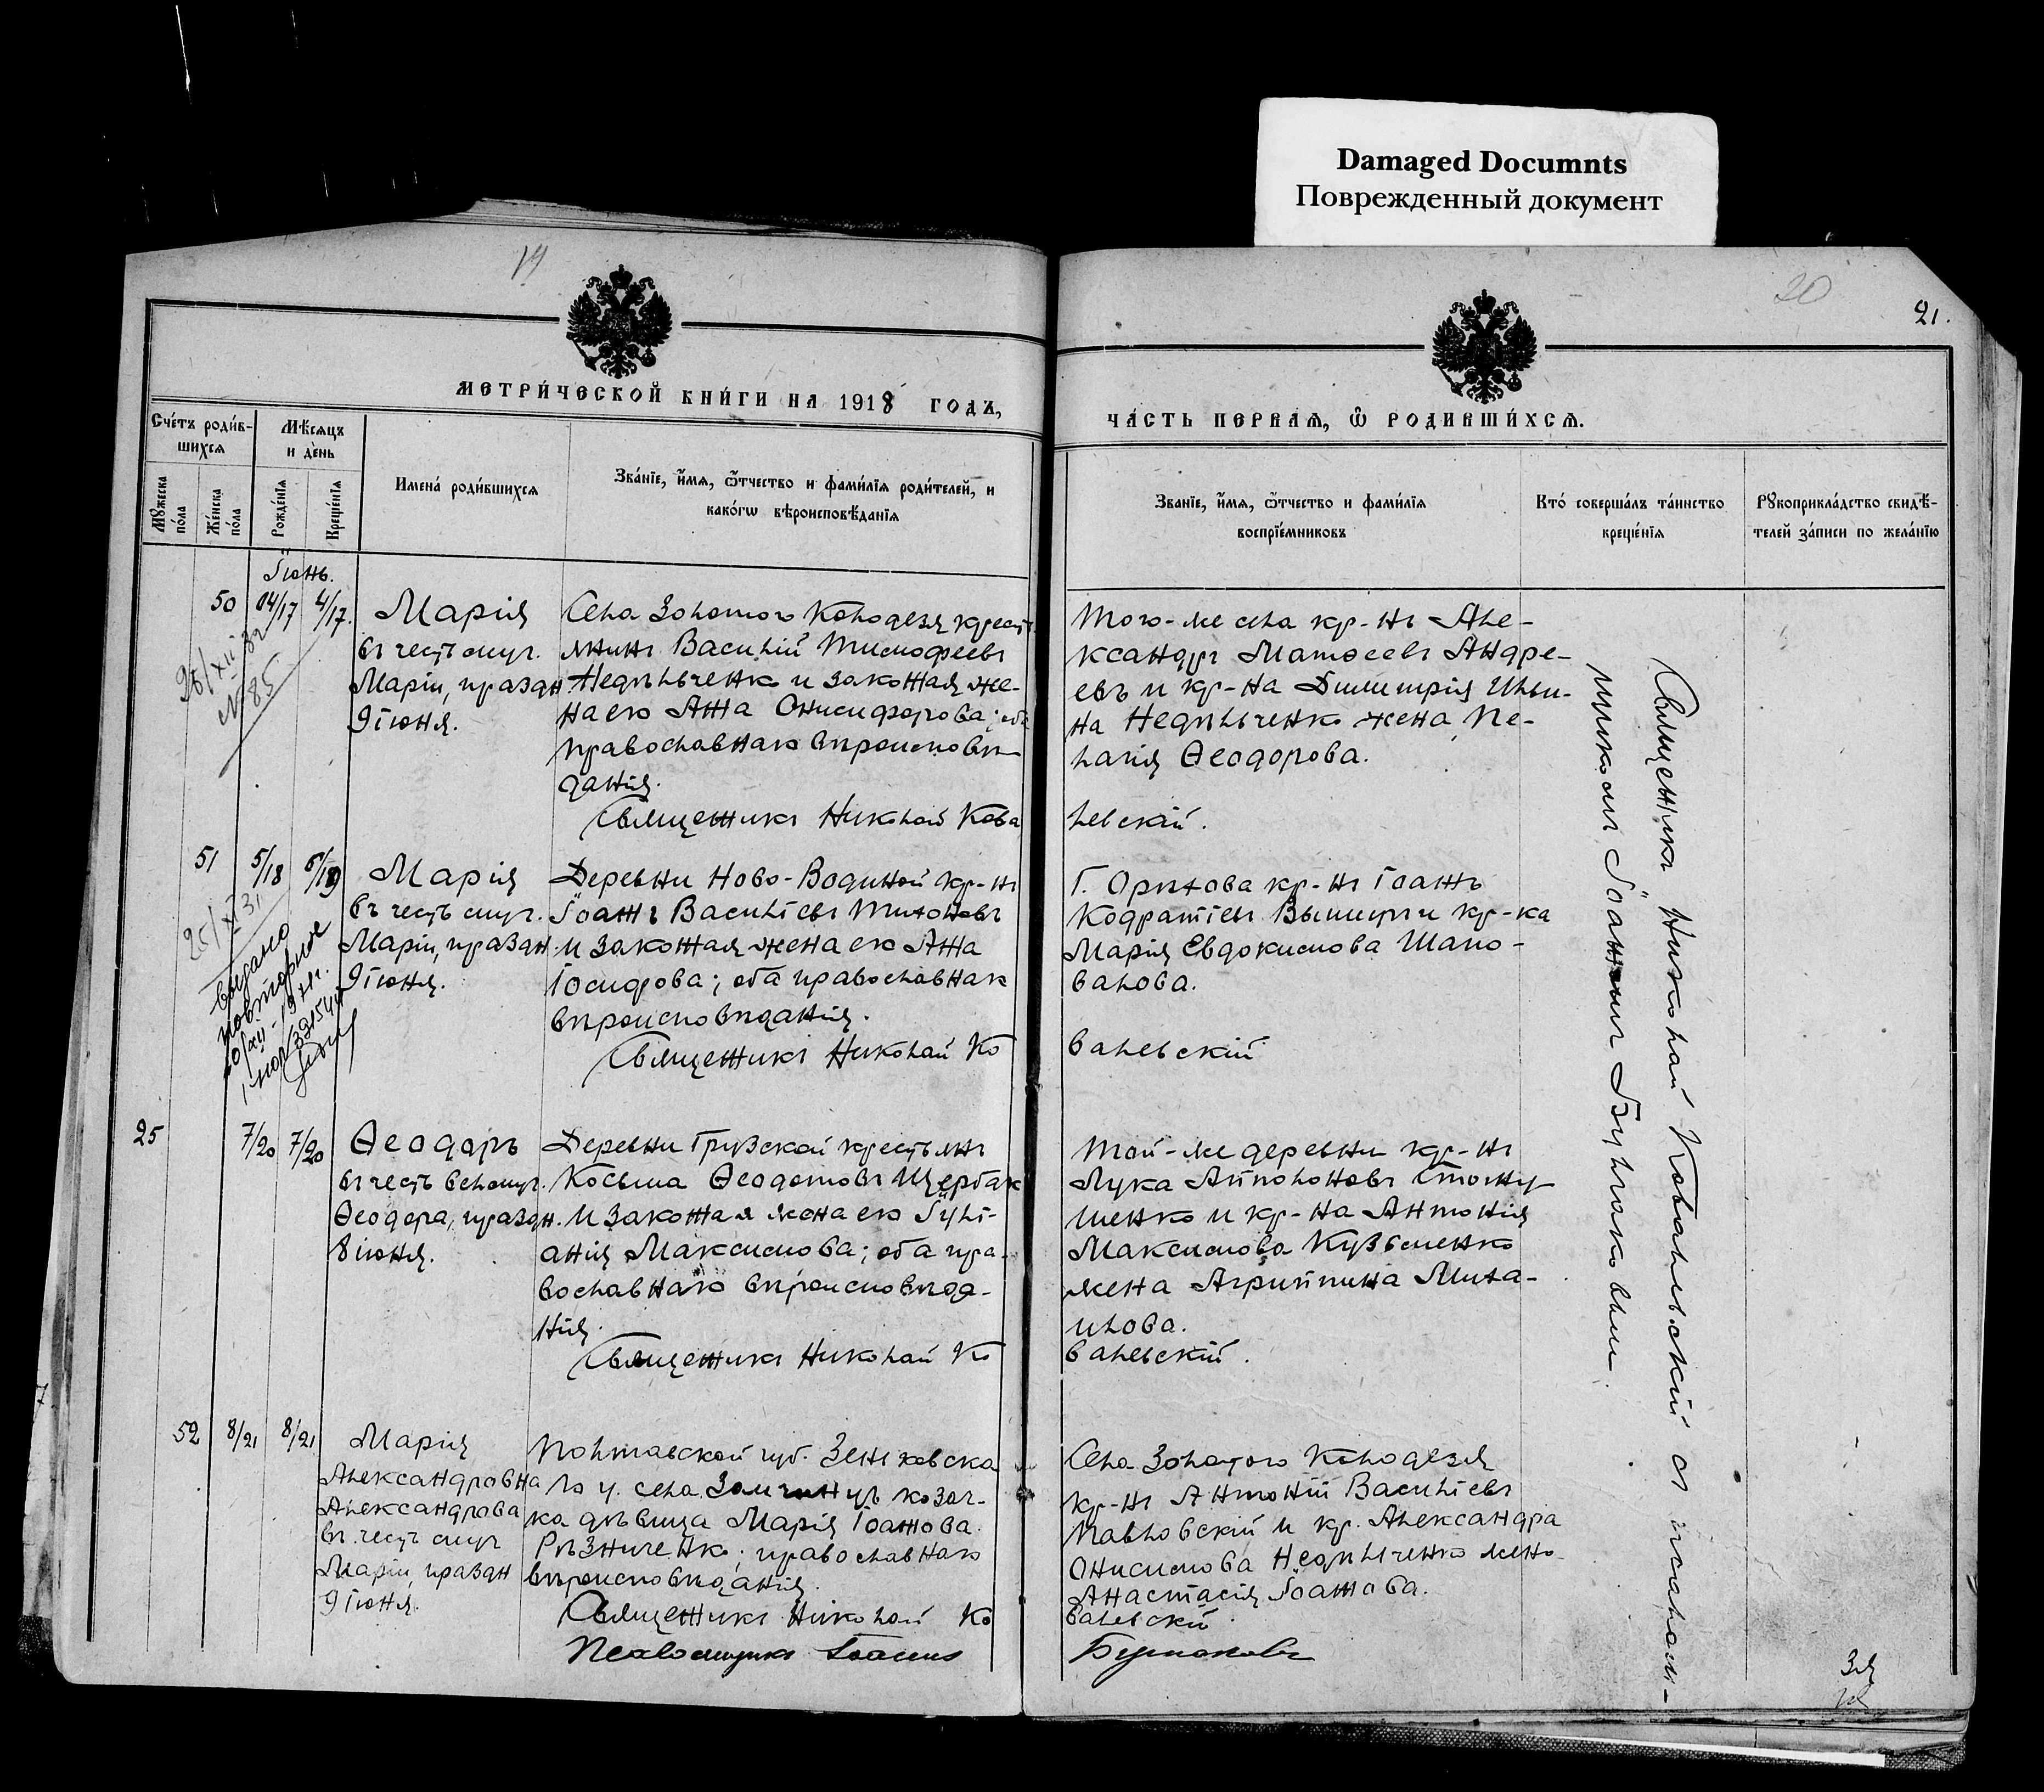 Damaged Documnts
Поврежденный документ
19
20
21.
МЕТРИ́ЧЕСКОЙ КНИ́ГИ НА 1918 ГОДЪ,
ЧА́СТЬ ПЕРВАЯ, Ѽ РОДИВШИ́ХСЯ.
Сче́тъ роди́в-
шихся
Мѣсяцъ
и де́нь
Мꙋжеска по́ла
Же́нска по́ла
Рожде́нїя
Креще́нїя
Имена́ роди́вшихся
Зва́нїе, и́мя, ѻ́тчество и фами́лїя роди́телей, и
како́гѡ вѣроисповѣ́данїя
Зва́нїе, и́мя, ѻ́тчество и фами́лїя
воспрїе́мниковъ
Кто́ соверша́лъ та́инство
креще́нїя
Рꙋкоприкла́дство свидѣ́-
телей за́писи по жела́нїю
Іюнь.
50
04/17
4/17.
№ 85
Марія
въ честь муч.
Маріи, праздн
9 іюня.
Села Золотого Колодезя крест
янинъ Василій Тимофеевъ
Недѣльченко и законная же-
на его Анна Онисифорова; оба
православнаго вѣроисповѣ-
данія.
Священникъ Николай Кова
Того-же села кр-нъ Але-
ксандръ Матѳеевъ Андре-
евъ и кр-на Димитрія Ильи-
на Недѣльченко жена Пе-
лагія Ѳеодорова.
левскій.
51
5/18
6/19
выдано
повторное
Марія
въ честь муч.
Маріи, праздн.
9 іюня.
Деревни Ново-Водяной кр-нъ
Іоаннъ Васильевъ Тихоновъ
и законная жена его Анна
Іосифова; оба православнаго
вѣроисповѣданія.
Священникъ Николай Ко
Г. Орѣхова кр-нъ Іоаннъ
Кодратіевъ и кр-ка
Марія Евдокимова Шапо-
валова.
валевскій
25
7/20
7/20
Ѳеодоръ
въ честь великомуч.
Ѳеодора, праздн.
8 іюня.
Деревни Грузской крестьянъ
Косьма Ѳеодотовъ Щербак
и законная жена его Іулі-
анія Максимова; оба пра-
вославнаго вѣроисповѣда-
нія.
Священникъ Николай Ко
Той-же деревни кр-нъ
Лука Аполоновъ
шенко и кр-на Антонія
Максимова Кузьменко
жена Агриппина Миха-
илова.
валевскій.
52
8/21
8/21
Марія
Александровна
Александрова
въ честь муч
Маріи, праздн
9 іюня.
Полтавской губ. Зеньковска
го у. села козач-
ка дѣвица Марія Іоаннова
Рѣзниченко; православнаго
вѣроисповѣданія.
Священникъ Николай Ко
Псаломщикъ Іоаннъ
Села Золотого Колодезя
кр-нъ Антоній Васильевъ
Павловскій и кр. Александра
Онисимова Недѣльченко жена
Анастасія Іоаннова.
валевскій
Бурлаковъ
Священникъ Николай Ковалевскій съ псалом-
щикомъ Іоанномъ Бурлаковымъ.